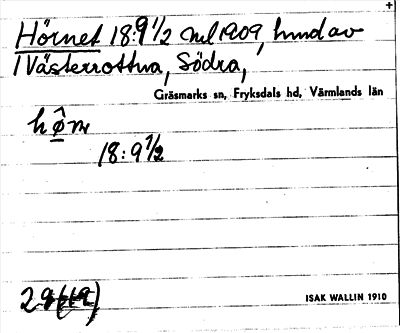 Hörnet 18:9 1/2 mtl 1909, hmd av
1 Västerrottna, Södra,
Gräsmarks sn, Fryksdals hd, Värmlands län
18:9 1/2
29
ISAK WALLIN 1910